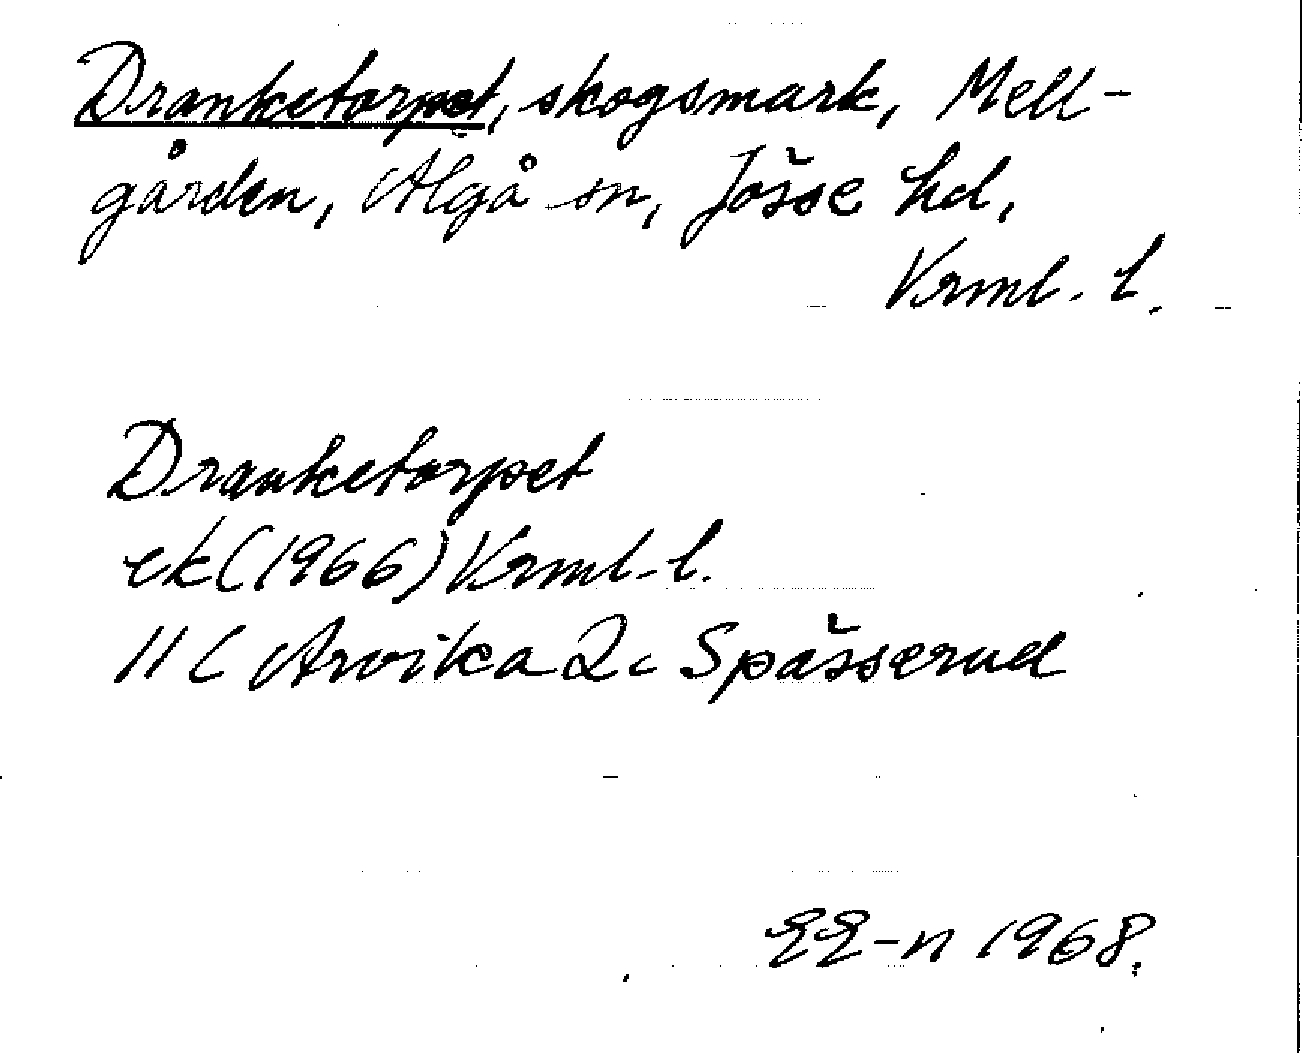 Dranketorpet, skogsmark, Mell-
gården, Älgå sn, Jösse hd,
Vrml. l.
Dranketorpet
ek (1966) Vrml. l.
11 C Arvika 2c Spässerud
EE-n 1968.